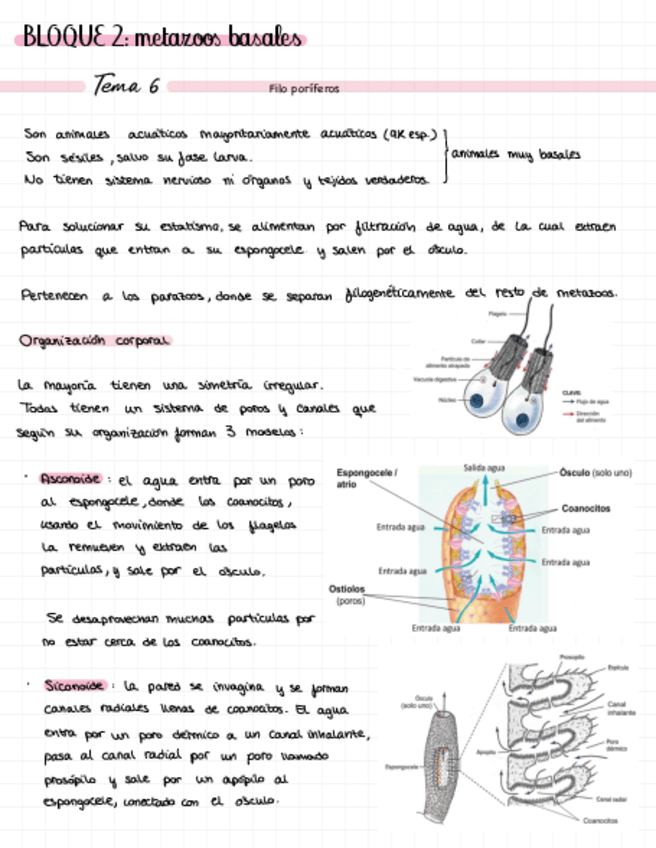 BLOQUE 2: metazoos basales
Tema 6
Filo poríferos
Son animales acuáticos mayoritariamente acuáticos (9K esp.)
Son sésiles, salvo su fase larva.
No tienen sistema nervioso ni órganos y tejidos verdaderos.
animales muy basales
Para solucionar su estatismo, se alimentan por filtración de agua, de la cual extraen
partículas que entran a su espongocele y salen por el ósculo.
Pertenecen a los parazoos, donde se separan filogenéticamente del resto de metazoos.
Organización corporal
La mayoría tienen una simetría irregular.
Todas tienen un sistema de poros y canales que
según su organización forman 3 modelos:
Flagelo
Collar
Partícula de
alimento atrapada
Vacuola digestiva
Núcleo
CLAVE:
Flujo de agua
Dirección
del alimento
· Asconoide: el agua entra por un poro
al espongocele, donde los coanocitos,
usando el movimiento de los flagelos
la remueven y extraen las
partículas, y sale por el ósculo.
Se desaprovechan muchas partículas por
no estar cerca de los coanocitos.
Espongocele /
atrio
Salida agua
Ósculo (solo uno)
Coanocitos
Entrada agua
Entrada agua
Entrada agua
Entrada agua
Ostiolos
(poros)
Entrada agua
Entrada agua
· Siconoide: la pared se invagina y se forman
canales radiales llenas de coanocitos. El agua
entra por un poro dérmico a un canal inhalante,
pasa al canal radial por un poro llamado
prosópilo y sale por un apópilo al
espongocele, conectado con el ósculo.
Ósculo
(solo uno)
Espongocele
Prosopilo
Espícula
Canal
inhalante
Poro
dérmico
Apopilo
Canal radial
Coanocitos